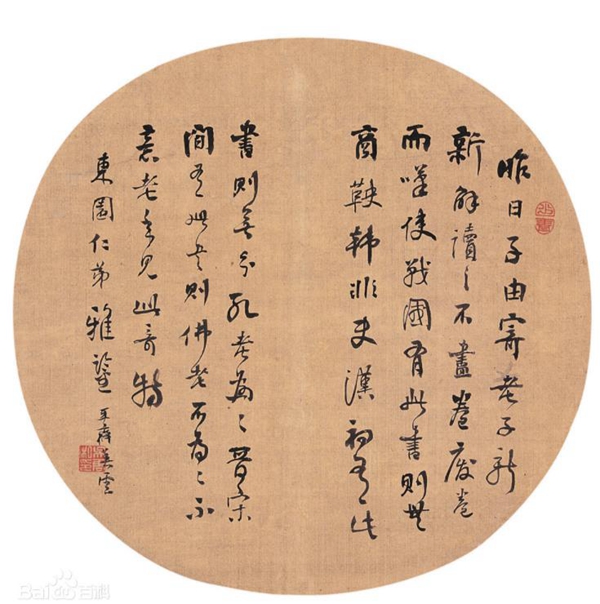 昨日子由寄老子新
新解讀之不盡卷廢卷
而嘆使戰國有此書則無
商鞅韓非使漢初有此
書則無分孔老為一晉宋
間有此書則佛老不為二不
意老年見此奇特
東園仁弟雅鑒 平齋吳雲
Baidu百科